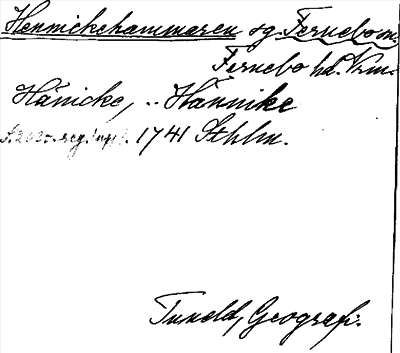 Hennickehammaren sg Fernebo sn.
Fernebo hd. Vrm.
Hänicke, .. Hännike
1741 Sthlm.
Tuneld, Geografi.